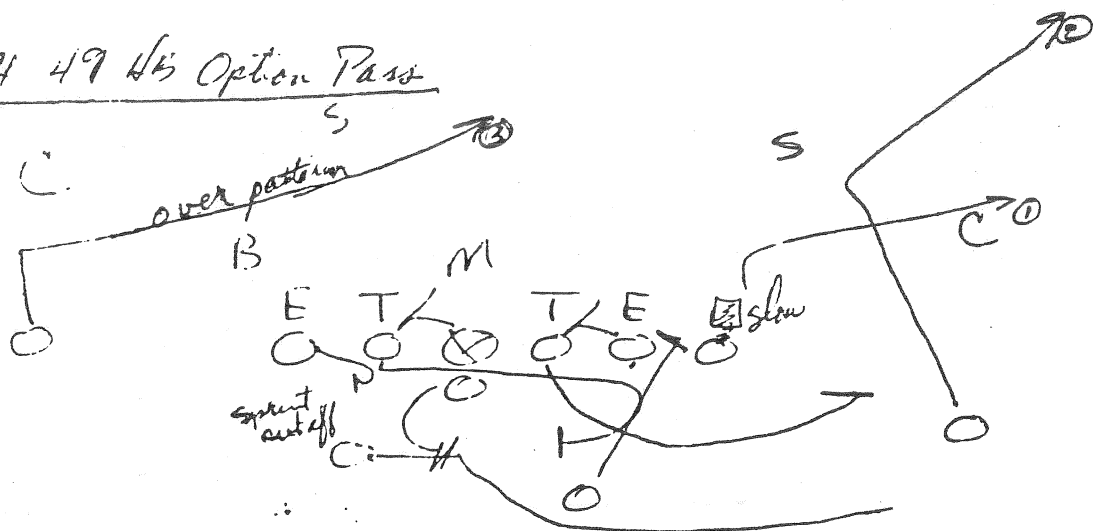 49 HB Option Pass
S
③
②
S
C
over pattern
C ①
B
M
E T T E slow
sprint
out off